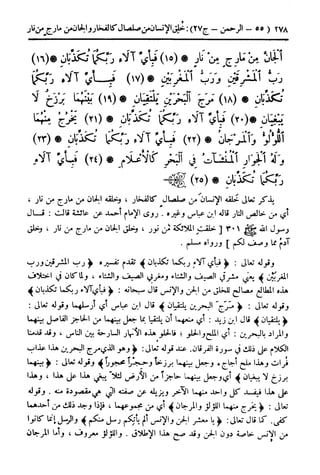 ٢٧٨ ( ٥٥ – الرحمن – ج ٢٧) : خلق الإنسان من صلصال كالفخار والجان من مارج من نار
الْجَانَّ مِنْ مَارِجٍ مِنْ نَارٍ * (١٥) فَبِأَيِّ آلَاءِ رَبِّكُمَا تُكَذِّبَانِ * (١٦)
رَبُّ الْمَشْرِقَيْنِ وَرَبُّ الْمَغْرِبَيْنِ * (١٧) فَبِأَيِّ آلَاءِ رَبِّكُمَا
تُكَذِّبَانِ * (١٨) مَرَجَ الْبَحْرَيْنِ يَلْتَقِيَانِ * (١٩) بَيْنَهُمَا بَرْزَخٌ لَا
يَبْغِيَانِ * (٢٠) فَبِأَيِّ آلَاءِ رَبِّكُمَا تُكَذِّبَانِ * (٢١) يَخْرُجُ مِنْهُمَا
اللُّؤْلُؤُ وَالْمَرْجَانُ * (٢٢) فَبِأَيِّ آلَاءِ رَبِّكُمَا تُكَذِّبَانِ * (٢٣)
وَلَهُ الْجَوَارِ الْمُنْشَآتُ فِي الْبَحْرِ كَالْأَعْلَامِ * (٢٤) فَبِأَيِّ آلَاءِ
رَبِّكُمَا تُكَذِّبَانِ * (٢٥)
يذكر تعالى خلقه الإنسان من صلصال كالفخار ، وخلقه الجان من مارج من نار ،
أي من خالص النار قاله ابن عباس وغيره . روى الإمام أحمد عن عائشة قالت : قال
رسول الله ٣٠١ « خلقت الملائكة من نور ، وخلق الجان من مارج من نار ، وخلق
آدم مما وصف لكم » ورواه مسلم .
وقوله تعالى : ﴿ فبأي آلاء ربكما تكذبان ﴾ تقدم تفسيره ﴿ رب المشرقين ورب
المغربين ﴾ يعني مشرقي الصيف والشتاء ومغربي الصيف والشتاء ، ولما كان في اختلاف
هذه المطالع مصالح للخلق من الجن والإنس قال سبحانه : ﴿ فبأي آلاء ربكما تكذبان ﴾
وقوله تعالى : ﴿ مرج البحرين يلتقيان ﴾ قال ابن عباس أي أرسلهما وقوله تعالى :
﴿ يلتقيان ﴾ قال ابن زيد : أي منعهما أن يلتقيا بما جعل بينهما من الحاجز الفاصل بينهما
والمراد بالبحرين : أي الملح والحلو ، فالحلو هذه الأنهار السارحة بين الناس ، وقد قدمنا
الكلام على ذلك في سورة الفرقان. عند قوله تعالى : ﴿ وهو الذي مرج البحرين هذا عذاب
فرات وهذا ملح أجاج ، وجعل بينهما برزخاً وحجراً محجوراً ﴾ وقوله تعالى : ﴿ بينهما
برزخ لا يبغيان ﴾ أي وجعل بينهما حاجزاً من الأرض لئلا يبغي هذا على هذا ، وهذا
على هذا فيفسد كل واحد منهما الآخر ويزيله عن صفته التي هي مقصودة منه . وقوله
تعالى : ﴿ يخرج منهما اللؤلؤ والمرجان ﴾ أي من مجموعهما ، فإذا وجد ذلك من أحدهما
كفى. كما قال تعالى : ﴿ يا معشر الجن والإنس ألم يأتكم رسل منكم ﴾ والرسل إنما كانوا
من الإنس خاصة دون الجن وقد صح هذا الإطلاق . واللؤلؤ معروف ، وأما المرجان